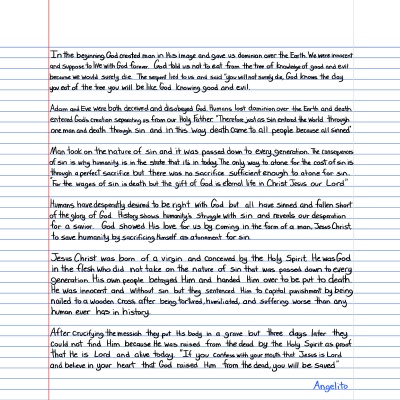 In the beginning God created man in His image and gave us dominion over the Earth. We were innocent
and suppose to live with God forever. God told us not to eat from the tree of knowledge of good and evil
because we would surely die. The serpent lied to us and said "you will not surely die, God knows the day
you eat of the tree you will be like God knowing good and evil.
Adam and Eve were both deceived and disobeyed God. Humans lost dominion over the Earth and death
entered God's creation separating us from our Holy Father "Therefore, just as sin entered the world through
one man and death through sin and in this way death came to all people because all sinned"
Man took on the nature of sin and it was passed down to every generation. The consequences
of sin is why humanity is in the state that it's in today. The only way to atone for the cost of sin is
through a perfect sacrifice but there was no sacrifice sufficient enough to atone for sin.
"For the wages of sin is death but the gift of God is eternal life in Christ Jesus our Lord"
Humans have desperately desired to be right with God but all have sinned and fallen short
of the glory of God. History shows humanity's struggle with sin and reveals our desperation
for a savior. God showed His love for us by coming in the form of a man, Jesus Christ,
to save humanity by sacrificing himself as atonement for sin.
Jesus Christ was born of a virgin and conceived by the Holy Spirit. He was God
in the flesh who did not take on the nature of sin that was passed down to every
generation. His own people betrayed Him and handed Him over to be put to death.
He was innocent and without sin but they sentenced Him to capital punishment by being
nailed to a wooden cross after being tortured, humiliated, and suffering worse than any
human ever has in history.
After crucifying the messiah they put His body in a grave but three days later they
could not find Him because He was raised from the dead by the Holy Spirit as proof
that He is Lord and alive today. "If you confess with your mouth that Jesus is Lord
and believe in your heart that God raised Him from the dead, you will be saved"
Angelito